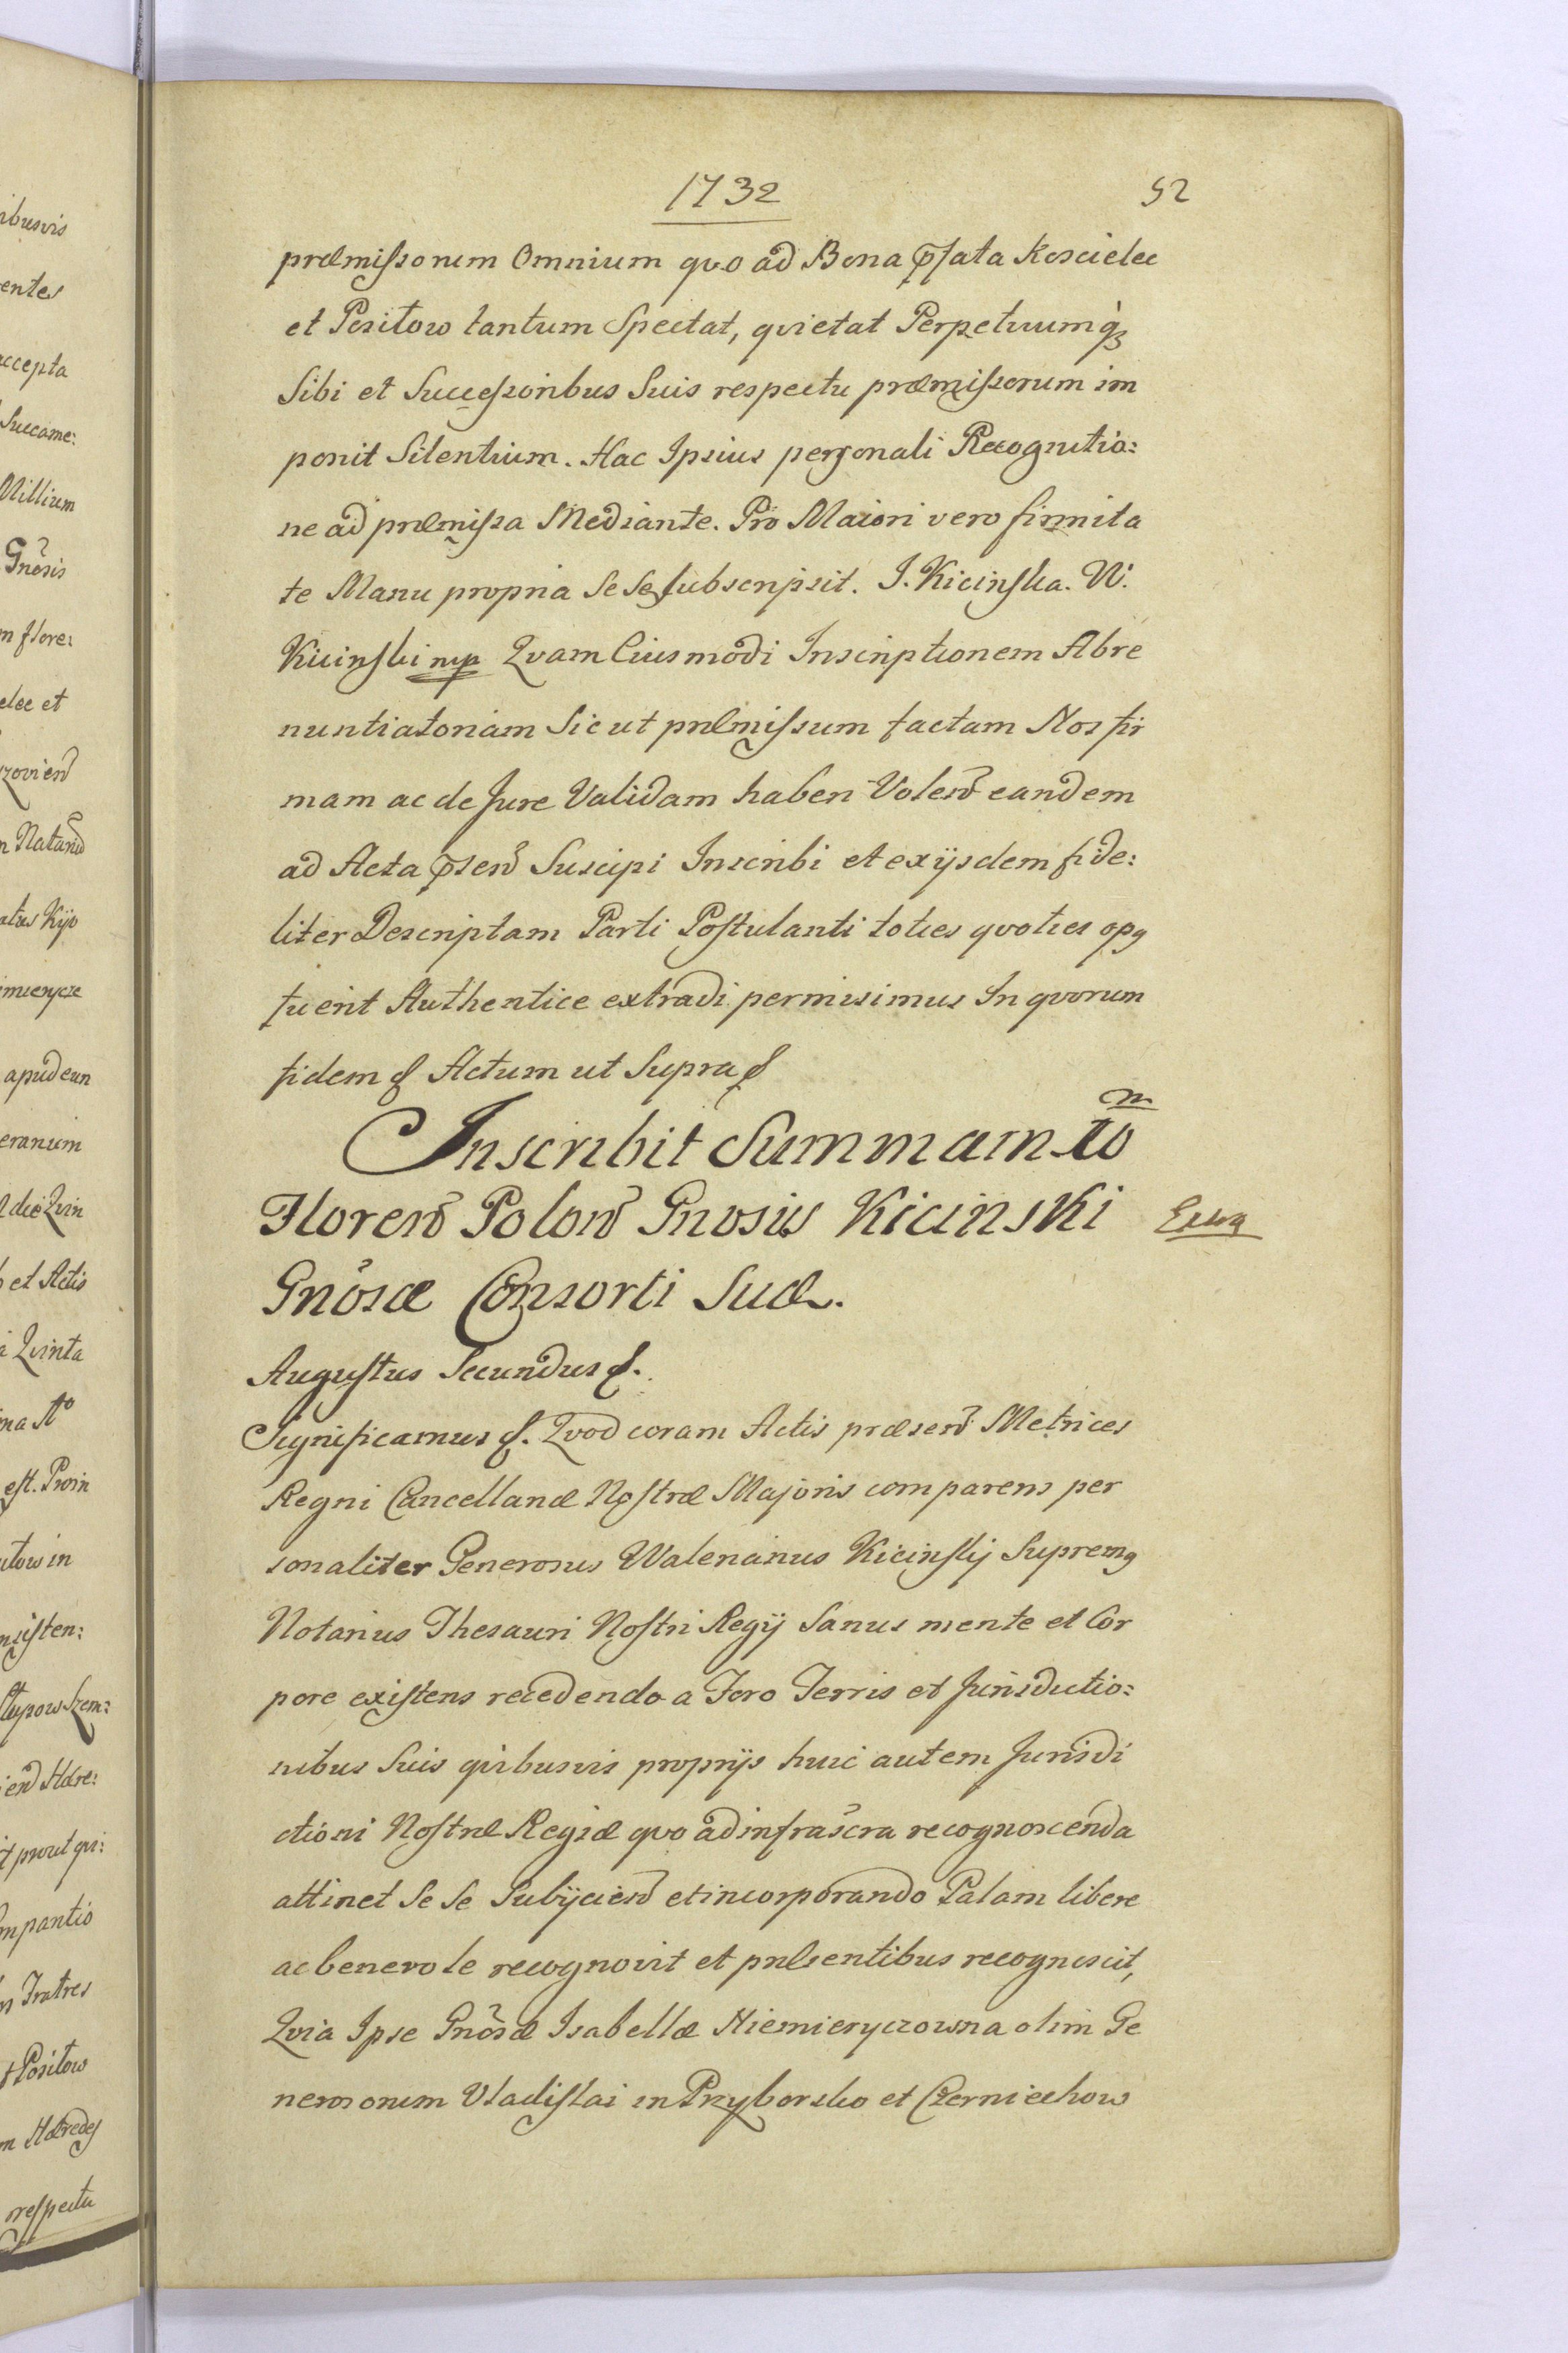 1732
52
præmissorum Omnium quo ad Bona pfata Koscielec
et Positow tantum Spectat, quietat Perpetuumq3
Sibi et Successoribus Suis respectu præmissorum im
ponit Silentium. Hac Ipsius personali Recognitio:
ne ad præmissa Mediante. Pro Maiori vero firmita
te Manu propria Se Se subscripsit. J. Kicinska. W.
Kicinski mp Qvam Eiusmodi Inscriptionem Abre
nuntiatoriam Sic ut præmissum factam Nos fir
mam ac de Jure Validam haberi Volen eandem
ad Acta psen Suscipi Inscribi et ex ijsdem fide:
liter Descriptam Parti Postulanti toties quoties op9
fuerit Authentice extradi permisimus In quorum
fidem Actum ut Supra
Inscribit Summam to m
Floren Polon Gnosus Kicinski
Gnosæ Consorti Suæ.
Augustus Secundus
Significamus Qvod coram Actis præsen Metrices
Regni Cancellariæ Nostræ Majoris comparens per
sonaliter Generosus Walerianus Kicinskij Suprem9
Notarius Thesauri Nostri Regij Sanus mente et Cor
pore existens recedendo a Foro Terris et Jurisdictio:
nibus Suis quibusvis proprijs huic autem Jurisdi
ctioni Nostræ Regiæ quo ad infrascra recognoscenda
attinet Se Se Subijcien et incorporando Palam libere
ac benevole recognovit et præsentibus recognoscit,
Qvia Ipse Gnosæ Isabellæ Niemieryczowna olim Ge
nerosorum Vladislai in Przyborsko et Czerniechow
ibusvis
entes
accepta
Succame:
Millium
Gnosis
m flore:
elec et
n Natand
atus Kijo
apud eun
eranum
die Qvin
et Actis
a Qvinta
ma Ao
est. Proin
utow in
nsisten:
t prout qui:
Fratres
t Positow
m Hæredes
respectu